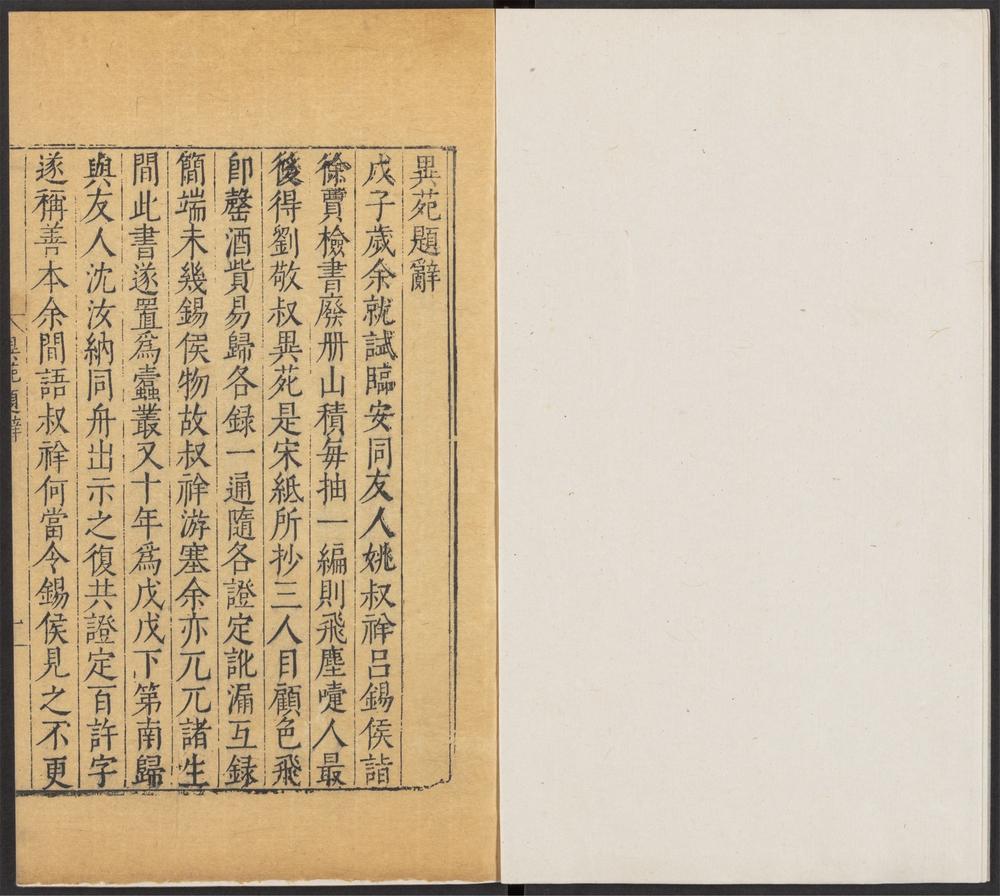 異苑題辭
戊子歲余就試臨安同友人姚叔祥吕錫侯詣
徐賈檢書廢册山積每抽一編則飛塵嚏人最
後得劉敬叔異苑是宋紙所抄三人目顧色飛
卽罄酒貲易歸各録一通隨各證定訛漏互録
簡端未幾錫侯物故叔祥游塞余亦兀兀諸生
間此書遂置爲蠹叢又十年爲戊戌下第南歸
與友人沈汝納同舟出示之復共證定百許字
遂稱善本余間語叔祥何當令錫侯見之不更
異苑題辭
一